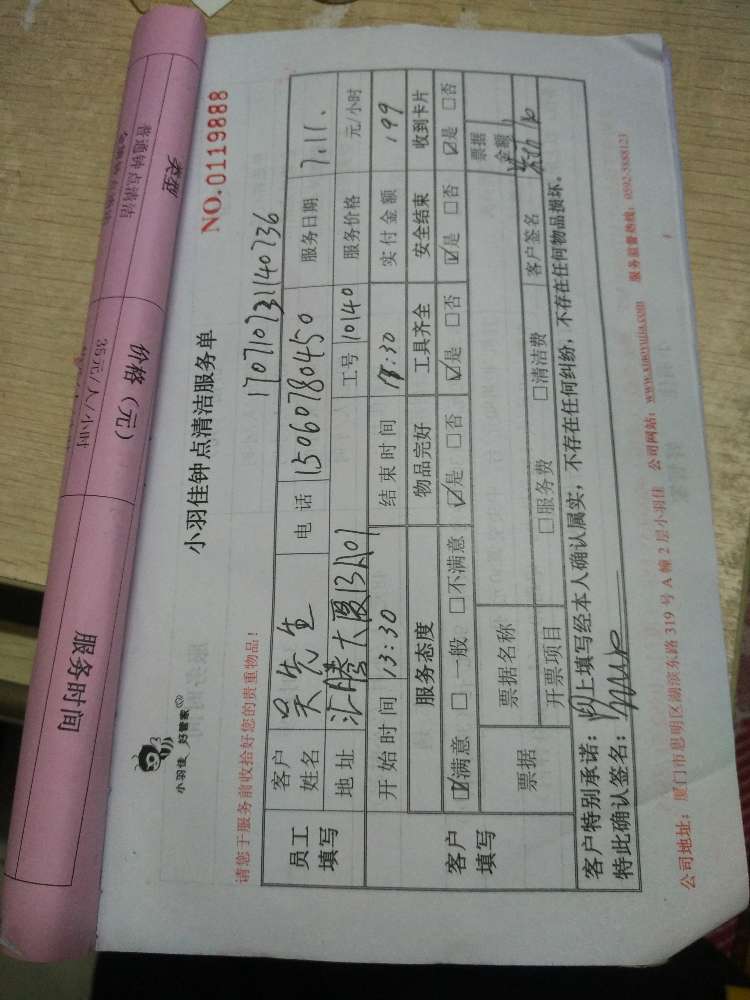 类型
价格（元）
服务时间
普通钟点清洁
35元/人/小时
小羽佳 好管家
小羽佳钟点清洁服务单
NO.0119888
请您于服务前收拾好您的贵重物品！
170710731140736
员工填写
客户姓名 吴先生 电话 15060780450 服务日期 7.11.
地址 汇腾大厦13A01 工号 10140 服务价格 元/小时
客户填写
开始时间 13:30 结束时间 18:30 实付金额 199
服务态度 物品完好 工具齐全 安全结束 收到卡片
☑满意 □一般 □不满意 ☑是 □否 ☑是 □否 ☑是 □否 ☑是 □否
票据 票据名称 票据金额
开票项目 □服务费 □清洁费 客户签名
客户特别承诺：以上填写经本人确认属实，不存在任何纠纷，不存在任何物品损坏。
特此确认签名：
公司地址：厦门市思明区湖滨东路319号A幢2层小羽佳 公司网站：www.xiaoyujia.com 服务监督热线：0592-5888123